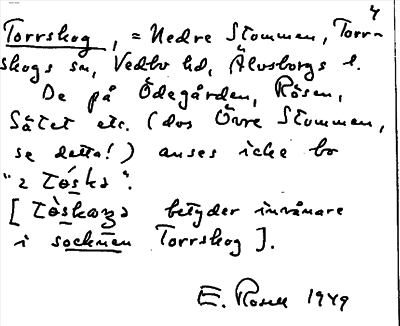 4
Torrskog, = Nedre Stommen, Torr-
skogs sn, Vedbo hd, Älvsborgs l.
De på Ödegården, Rösen,
Sätet etc. (dos Övre Stommen,
se detta!) anses icke bo
"i Tòska".
[Tòskaga betyder invånare
i socknen Torrskog].
E. Rosell 1949